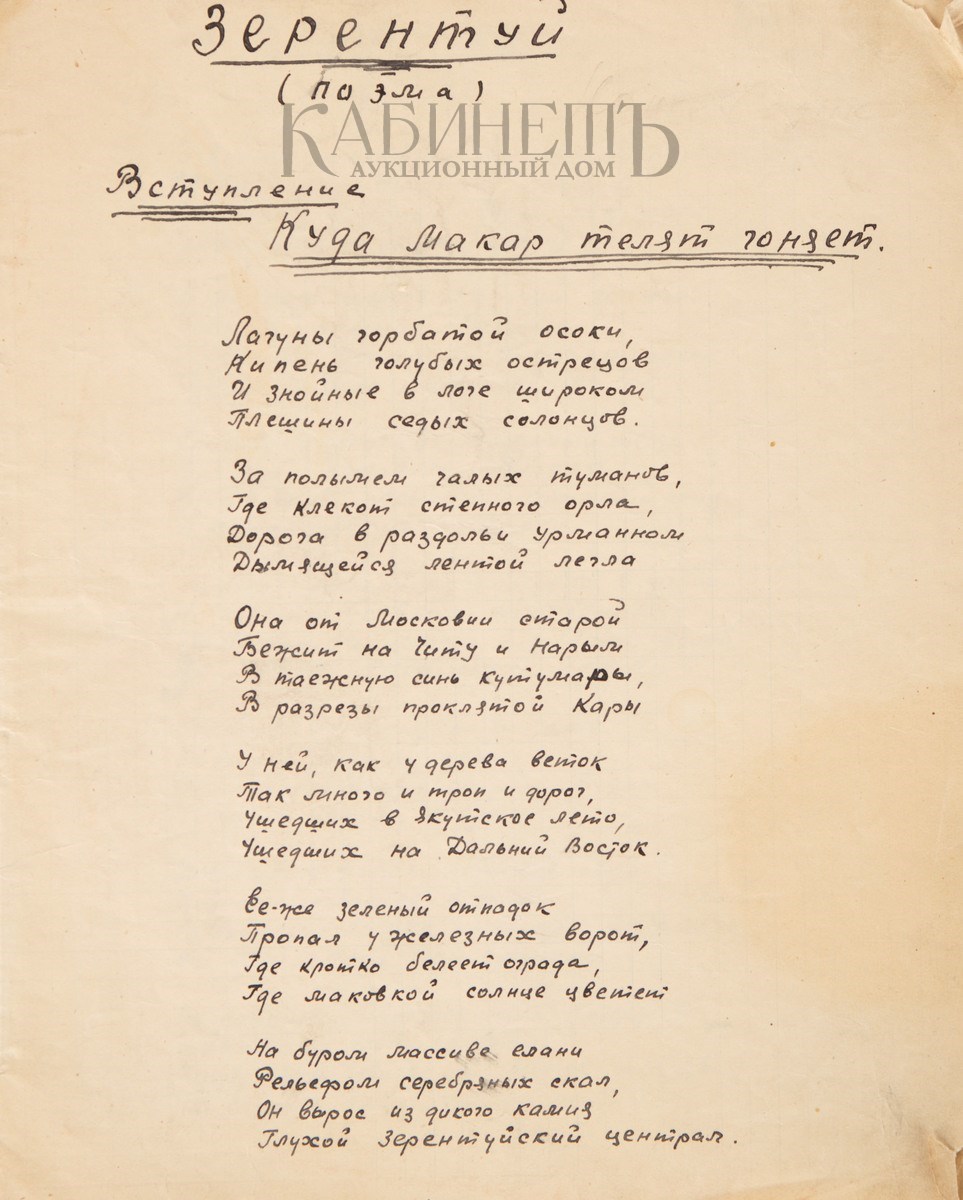 Зерентуй
(поэма)
КАБИНЕТЪ
АУКЦИОННЫЙ ДОМ
Вступление
Куда Макар телят гоняет.
Лагуны горбатой осоки,
Кипень голубых острецов
И знойные в логе широком
Плешины седых солонцов.
За полымем чалых туманов,
Где клекот степного орла,
Дорога в раздольи урманном
Дымящейся лентой легла
Она от Московии старой
Бежит на Читу и Нарым
В таежную синь кутумары,
В разрезы проклятой Кары
У ней, как у дерева веток
Так много и троп и дорог,
Ушедших в Якутское лето,
Ушедших на Дальний Восток.
Ее-же зеленый отпадок
Пропал у железных ворот,
Где кротко белеет ограда,
Где маковкой солнце цветет
На буром массиве елани
Рельефом серебряных скал,
Он вырос из дикого камня
Глухой Зерентуйский централ.